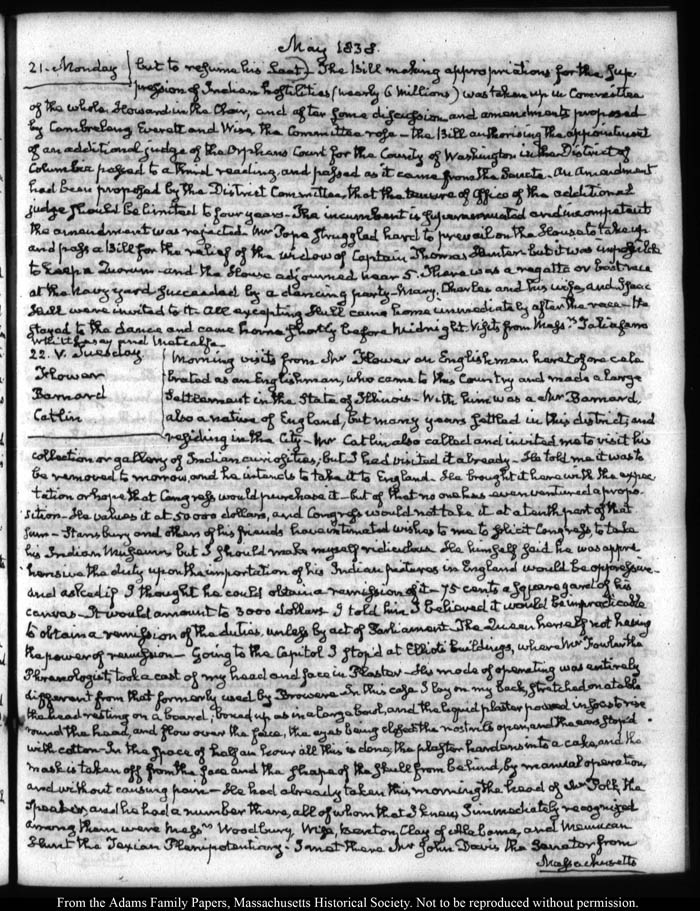 May 1838.
21. Monday
but to resume his Seat) The Bill making appropriations for the Sup-
pression of Indian hostilities (nearly 6 millions) was taken up in Committee
of the whole Howard in the Chair, and after some discussion and amendments proposed
by Cambreleng Everett and Wise, the Committee rose - the Bill authorising the appointment
of an additional judge of the Orphans Court for the County of Washington in the District of
Columbia passed to a third reading, and passed as it came from the Senate. An Amendment
had been proposed by the District Committee, that the tenure of Office of the additional
judge should be limited to four years. The incumbent is superannuated and incompetent
the amendment was rejected. Mr Pope struggled hard to prevail on the House to take up
and pass a Bill for the relief of the widow of Captain Thomas Hunter but it was impossible
to keep a Quorum - and the House adjourned near 5. There was a regatta or boat race
at the Navy yard succeeded by a dancing party. Mary, Charles and his wife, and Isaac
Hull were invited to it. All excepting Hull came home immediately after the race - He
stayed to the dance and came home shortly before midnight. Visits from Messrs. Taliafero
Whittlesey and Metcalfe.
22. V. Tuesday
Flower
Barnard
Catlin
Morning visits from Mr Flower an Englishman heretofore cele-
brated as an Englishman, who came to this Country and made a large
Settlement in the State of Illinois - With him was a Mr Barnard,
also a native of England, but many years settled in this district, and
residing in the City - Mr Catlin also called and invited me to visit his
collection or gallery of Indian curiosities; but I had visited it already - He told me it was to
be removed to morrow, and he intends to take it to England. He brought it here with the expec-
tation or hope that Congress would purchase it - but of that no one has even ventured a propo-
sition - He values it at 50 000 dollars, and Congress would not take it at a tenth part of that
sum - Stansbury and others of his friends have intimated wishes to me to solicit Congress to take
his Indian Museum, but I should make myself ridiculous. He himself said he was appre-
hensive the duty upon the importation of his Indian pictures in England would be oppressive -
and asked if I thought he could obtain a remission of it - 75 cents a square yard of his
canvas - It would amount to 3000 dollars. I told him I believed it would be impracticable
to obtain a remission of the duties, unless by act of Parliament. The Queen herself not having
the power of remission - Going to the Capitol I stop'd at Elliots buildings, where Mr Fowler the
Phrenologist, took a cast of my head and face in Plaster - His mode of operating was entirely
different from that formerly used by Browere. In this case I lay on my back, stretched on a table
the head resting on a board, boxed up as in a large bowl, and the liquid plaster poured in so as to rise
round the head, and flow over the face, the eyes being closed, the nostrils open, and the ears stop'd
with cotton - In the space of half an hour all this is done, the plaster hardens into a cake, and the
mask is taken off from the face and the shape of the skull from behind, by manual operation,
and without causing pain - He had already taken this morning the head of Mr Polk the
Speaker, and he had a number there, all of whom that I knew, I immediately recognized
among them were Messrs. Woodbury, Wise, Benton, Clay of Alabama, and Memucan
Hunt the Texian Plenipotentiary. I met there Mr John Davis the Senator from
Massachusetts
From the Adams Family Papers, Massachusetts Historical Society. Not to be reproduced without permission.